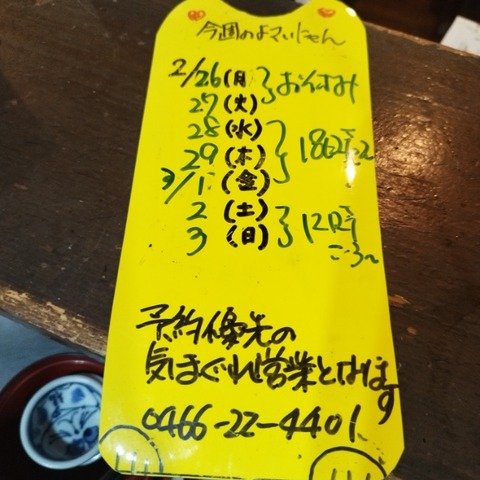 今週のよマいにゃん
2/26(月) おやすみ
27(火)
28(水)
29(木) 18時
3/1(金)
2(土) 12時
3(日) ころ〜
予約優先の
気まぐれ営業となります
0466-22-4401